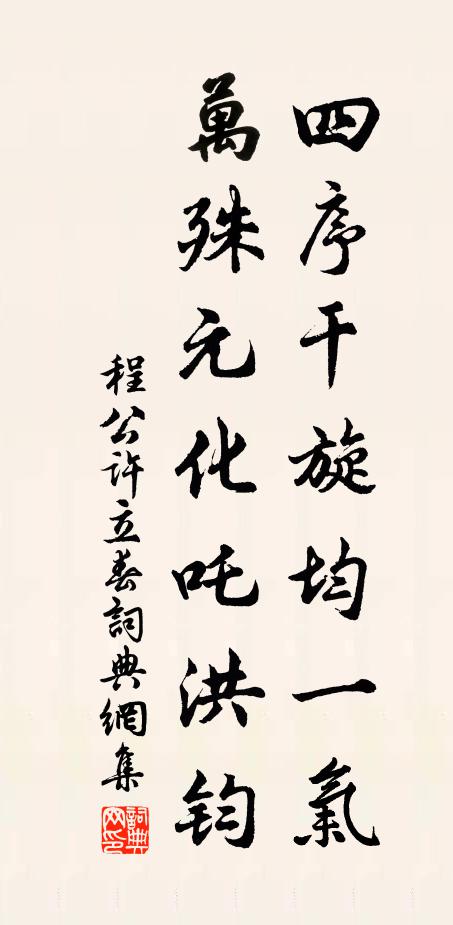 四序干旋均一氣
萬殊元化吒洪钧
程公许立春詞典網集
詞典網印